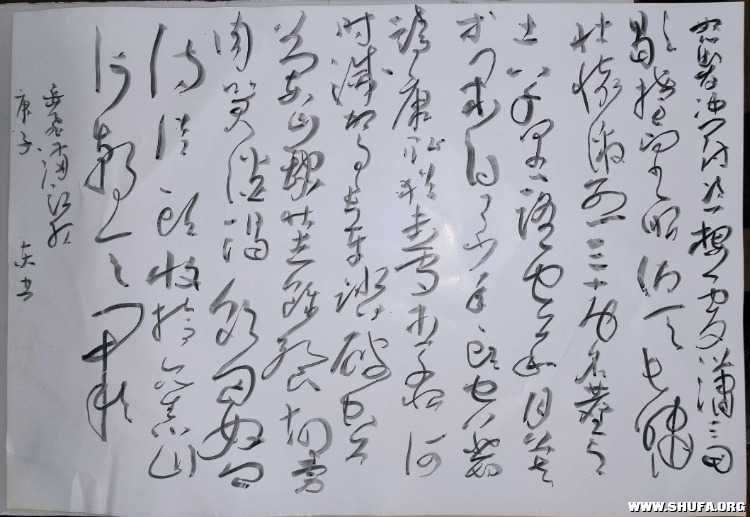 怒发冲冠凭栏处潇潇雨
歇抬望眼仰天长啸
壮怀激烈三十功名尘与
土八千里路云和月莫
等闲白了少年头空悲切
靖康耻犹未雪臣子恨何
时灭驾长车踏破
贺兰山缺壮志饥餐胡虏
肉笑谈渴饮匈奴血
待从头收拾旧山
河朝天阙
岳飞满江红
庚子 书
WWW.SHUFA.ORG